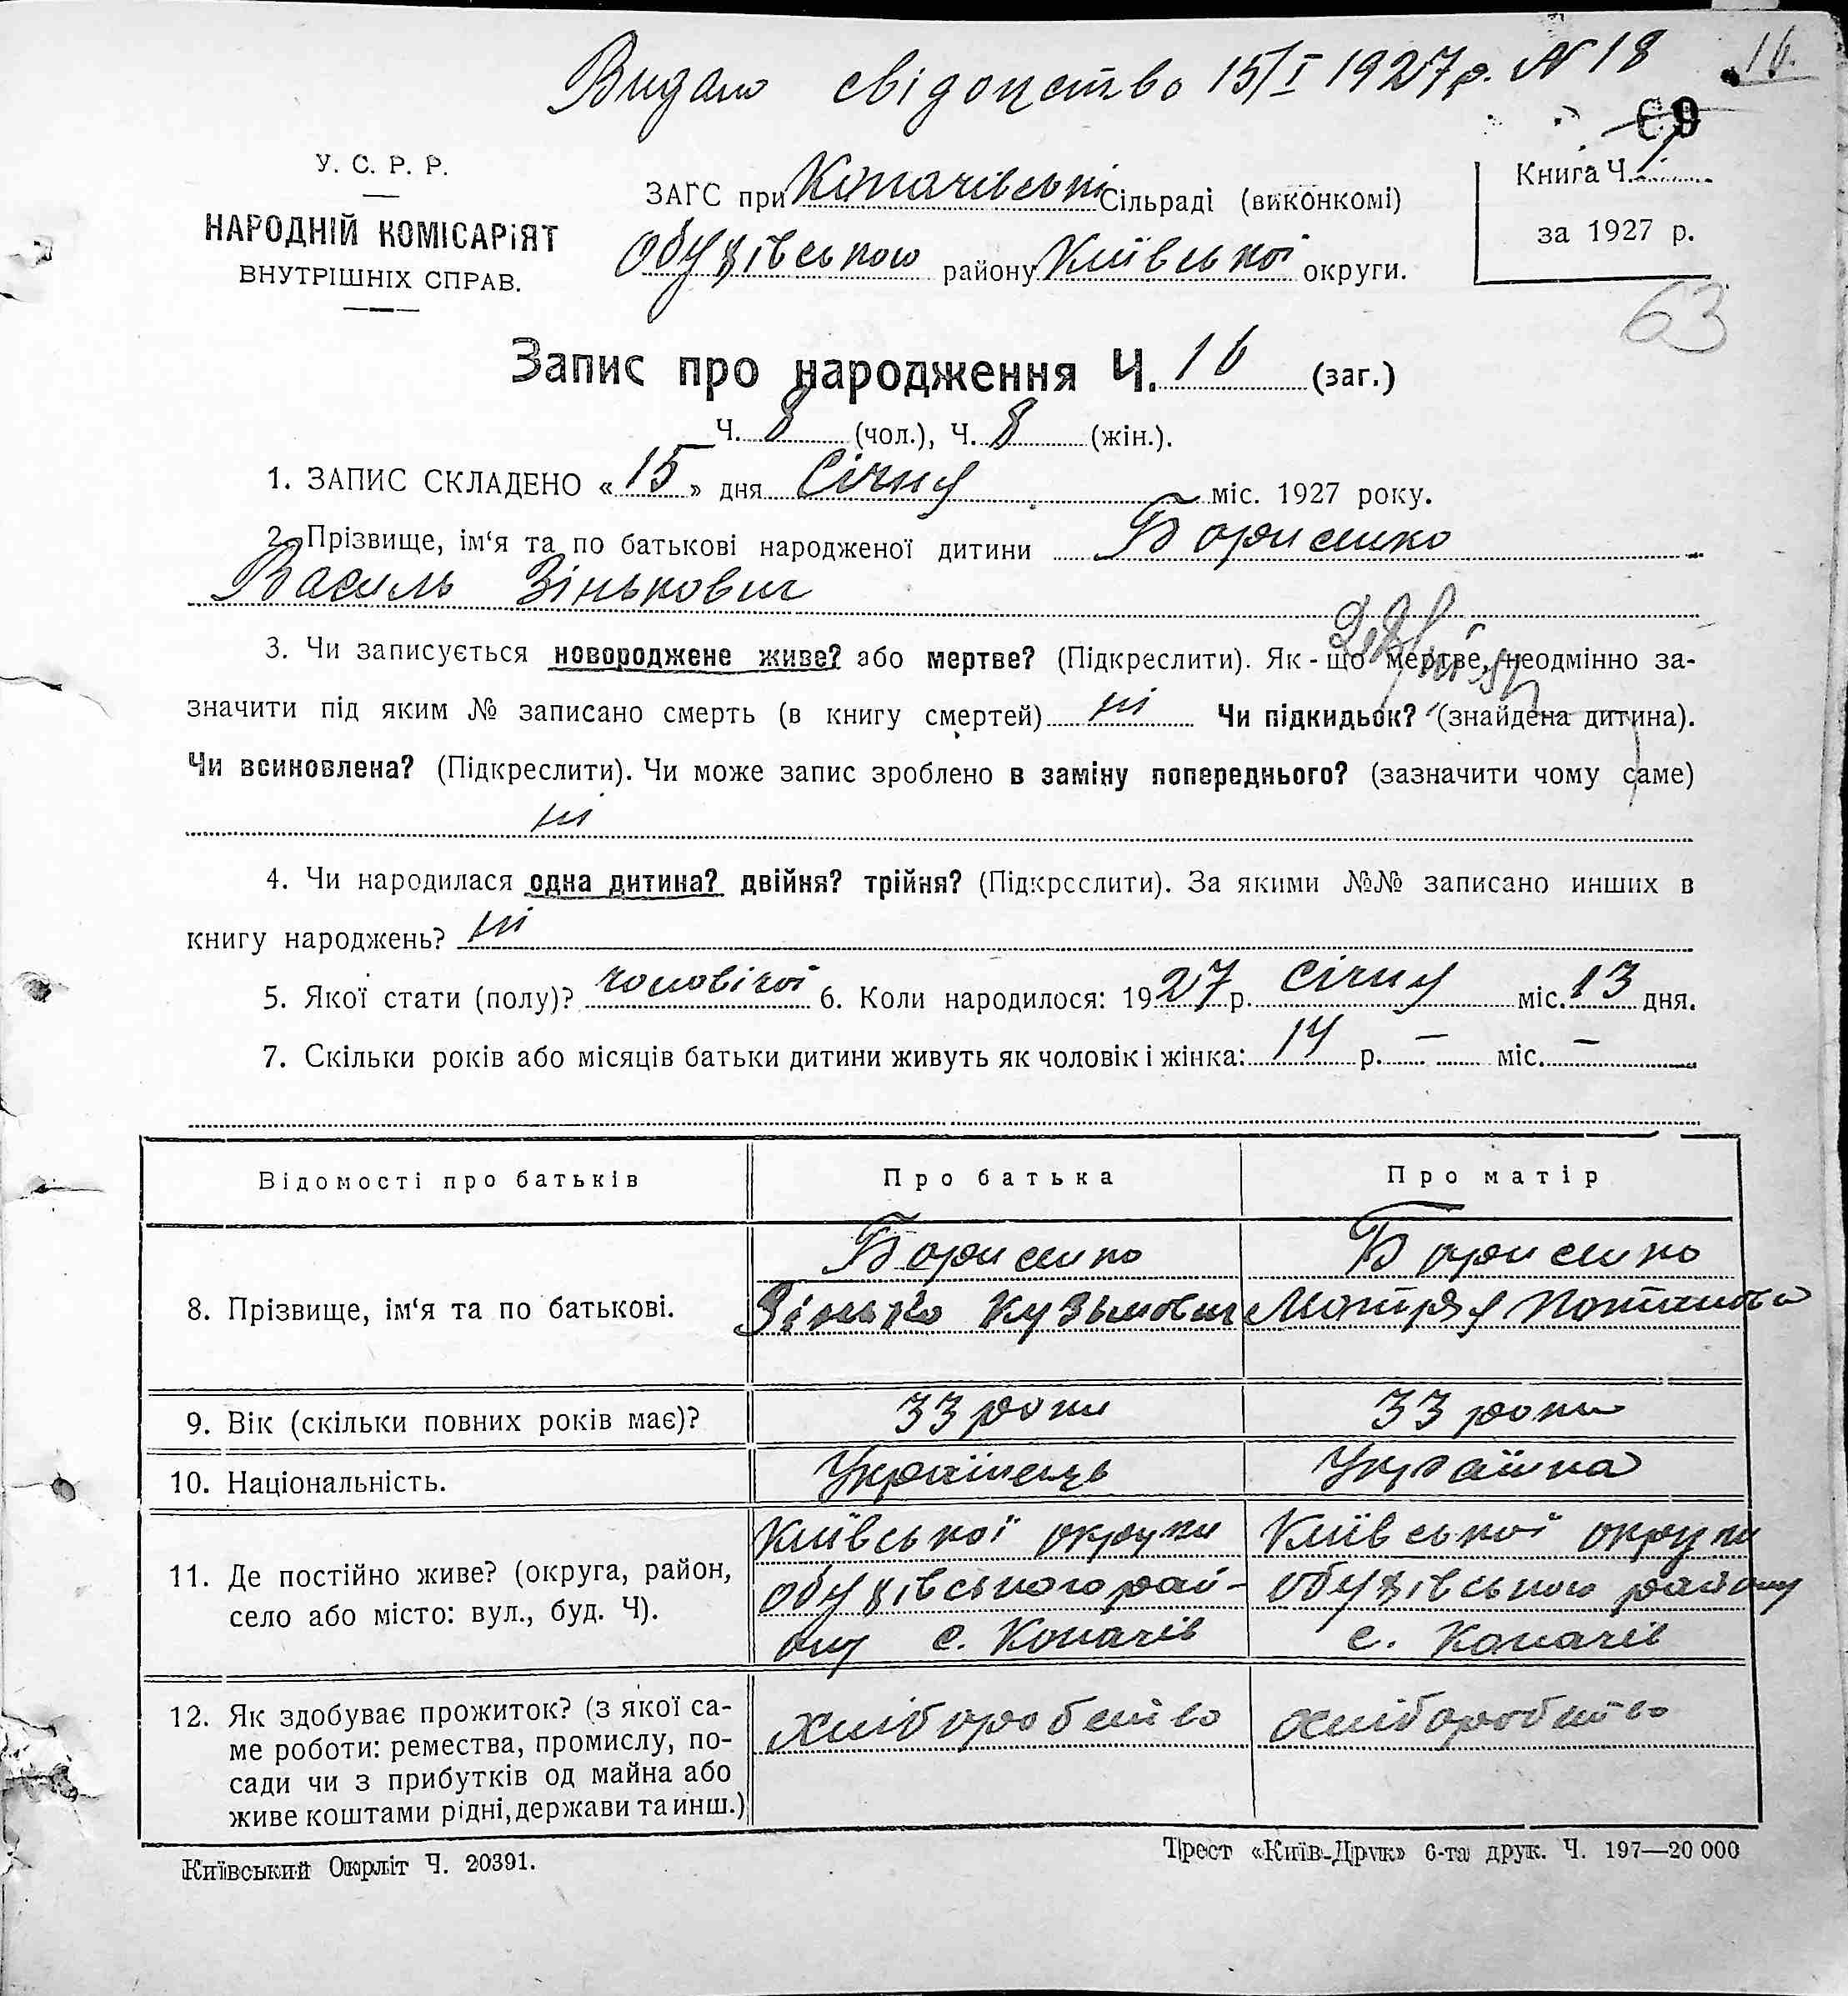 Видано свідоцтво 15/I 1927 р. N 18
16.
У. С. Р. Р.
НАРОДНІЙ КОМІСАРіЯТ
ВНУТРІШНІХ СПРАВ.
ЗАГС при Копачівські Сільраді (виконкомі)
Обухівського району Київської округи.
Книга Ч. 1
за 1927 р.
63
Запис про народження Ч. 16 (заг.)
Ч. 8 (чол.), Ч. 8 (жін.).
1. ЗАПИС СКЛАДЕНО «15» дня Січня міс. 1927 року.
2. Прізвище, ім‘я та по батькові народженої дитини Борисенко
Василь Зінькович
3. Чи записується новороджене живе? або мертве? (Підкреслити). Як-що мертве, неодмінно за-
значити під яким № записано смерть (в книгу смертей) ні Чи підкидьок? (знайдена дитина).
Чи всиновлена? (Підкреслити). Чи може запис зроблено в заміну попереднього? (зазначити чому саме)
ні
4. Чи народилася одна дитина? двійня? трійня? (Підкрсслити). За якими №№ записано инших в
книгу народжень? ні
5. Якої стати (полу)? чоловічої 6. Коли народилося: 1927 р. Січня міс. 13 дня.
7. Скільки років або місяців батьки дитини живуть як чоловік і жінка: 14 р. — міс. —
Відомості про батьків Про батька Про матір
8. Прізвище, ім‘я та по батькові.
Борисенко
Зінько Кузьмович
Борисенко
Мотря Потапова
9. Вік (скільки повних років має)? 33 роки 33 роки
10. Національність. Українець Українка
11. Де постійно живе? (округа, район,
село або місто: вул., буд. Ч).
Київської округи
Обухівського рай-
ону с. Копачів
Київської округи
Обухівського району
с. Копачів
12. Як здобуває прожиток? (з якої са-
ме роботи: ремества, промислу, по-
сади чи з прибутків од майна або
живе коштами рідні, держави та инш.)
хліборобство
хліборобство
Київський Окрліт Ч. 20391.
Трест «Київ-Друк» 6-та друк. Ч. 197—20 000